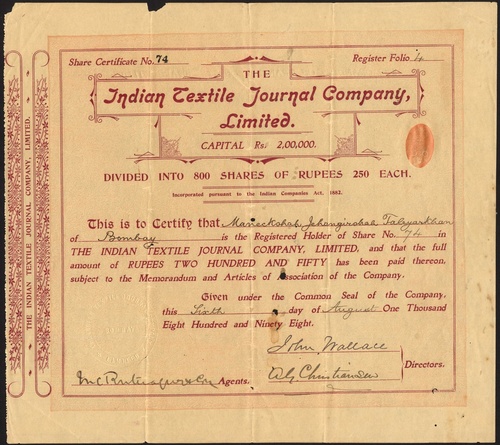 Share Certificate No. 74
Register Folio 4
THE
Indian Textile Journal Company,
Limited.
CAPITAL Rs. 2,00,000.
DIVIDED INTO 800 SHARES OF RUPEES 250 EACH.
Incorporated pursuant to the Indian Companies Act, 1882.
This is to Certify that Maneckshah Jehangirshah Taleyarkhan
of Bombay is the Registered Holder of Share No. 74 in
THE INDIAN TEXTILE JOURNAL COMPANY, LIMITED, and that the full
amount of RUPEES TWO HUNDRED AND FIFTY has been paid thereon,
subject to the Memorandum and Articles of Association of the Company.
Given under the Common Seal of the Company,
this Sixth day of August One Thousand
Eight Hundred and Ninety Eight.
John Wallace
Directors.
Agents.
THE INDIAN TEXTILE JOURNAL COMPANY, LIMITED.